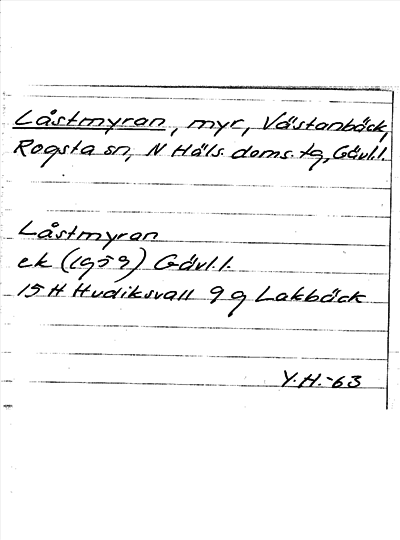 Låstmyran, myr, Västanbäck,
Rogsta sn, N Häls. doms. tg, Gävl.l.
Låstmyran
ek (1959) Gävl.l.
15 H Hudiksvall 9 g Lakbäck
Y.H.-63